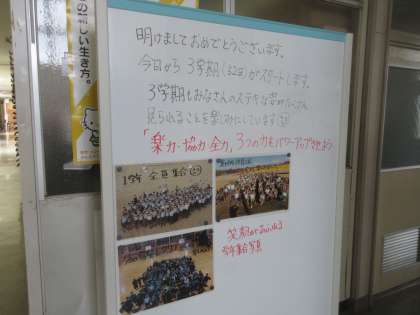 の
新しい生き方。
明けましておめでとうございます。
今日から 3学期(52日)がスタートします。
3学期もみなさんのステキな姿がたくさん
見られることを楽しみにしています(^^)
「楽力・協力・全力」3つの力をパワーアップさせよう
1学年 全員集合
笑顔があふれる
学年集合写真